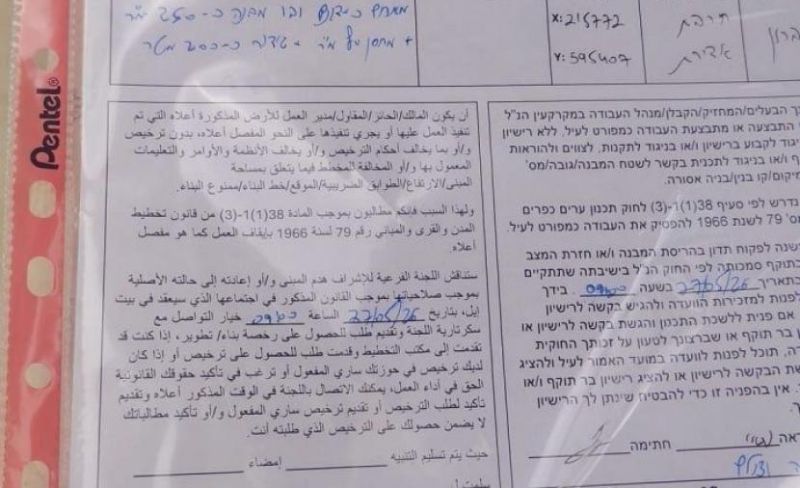 Pentel
מבנה כ-250 מ"ר
X: 215772
Y: 595407
أن يكون المالك/الحائز/المقاول/مدير العمل للأرض المذكورة أعلاه التي تم
تنفيذ العمل عليها أو يجري تنفيذها على النحو المفصل أعلاه، بدون ترخيص
و/أو بما يخالف أحكام الترخيص و/أو يخالف الأنظمة والأوامر والتعليمات
المعمول بها و/أو المخالفة المخطط فيما يتعلق بمساحة
المبنى/الارتفاع/الطوابق الضريبية/الموقع/خط البناء/ممنوع البناء.
ولهذا السبب فإنكم مطالبون بموجب المادة 38(1)(1-3) من قانون تخطيط
المدن والقرى والمباني رقم 79 لسنة 1966 بإيقاف العمل كما هو مفصل
أعلاه.
ستناقش اللجنة الفرعية للإشراف هدم المبنى و/أو إعادته إلى حالته الأصلية
بموجب صلاحياتها بموجب القانون المذكور في اجتماعها الذي سيعقد في بيت
إيل، بتاريخ الساعة خيار التواصل مع
سكرتارية اللجنة وتقديم طلب للحصول على رخصة بناء/ تطوير، إذا كنت قد
تقدمت إلى مكتب التخطيط وقدمت طلب للحصول على ترخيص أو إذا كان
لديك ترخيص في حوزتك ساري المفعول أو ترغب في تأكيد حقوقك القانونية
الحق في أداء العمل، يمكنك الاتصال باللجنة في الوقت المذكور أعلاه وتقديم
تأكيد لطلب الترخيص أو تقديم ترخيص ساري المفعول و/أو تأكيد مطالباتك
لا يضمن حصولك على الترخيص الذي طلبته أنت.
حيث يتم تسليم التنبيه إمضاء
ך הבעלים/המחזיק/הקבלן/מנהל העבודה במקרקעין הנ"ל
התבצעה או מתבצעת העבודה כמפורט לעיל, ללא רישיון
יגוד לקבוע ברישיון ו/או בניגוד לתקנות, לצווים ולהוראות
ף ו/או בניגוד לתכנית בקשר לשטח המבנה/גובה/מס'
מיקום/קו בנין/בניה אסורה.
נדרש לפי סעיף 38(1)(1-3) לחוק תכנון ערים כפרים
מס' 79 לשנת 1966 להפסיק את העבודה כמפורט לעיל.
משנה לפקוח תדון בהריסת המבנה ו/או חזרת המצב
בתוקף סמכותה לפי החוק הנ"ל בישיבתה שתתקיים
בתאריך בשעה בידך
לפנות למזכירות הוועדה ולהגיש בקשה לרישיון
אם פנית ללשכת התכנון והגשת בקשה לרישיון או
ן בר תוקף או שברצונך לטעון על זכותך החוקית
ה, תוכל לפנות לוועדה במועד האמור לעיל ולהציג
שת הבקשה לרישיון או להציג רישיון בר תוקף ו/או
אין בהפניה זו כדי להבטיח שינתן לך הרישיון
ראה חתימה: